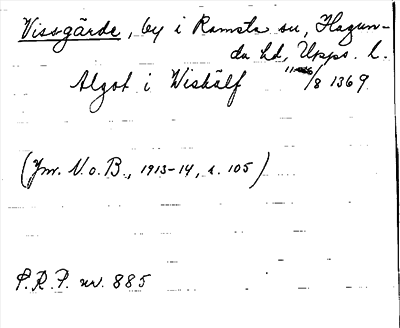 Vissgärde, by i Ramsta sn, Hagun-
da hd, Upps. l.
Algot i Wiskälf 11/8 1369
(Ym. N.o.B., 1913-14, s. 105)
S.R.P. nr. 885